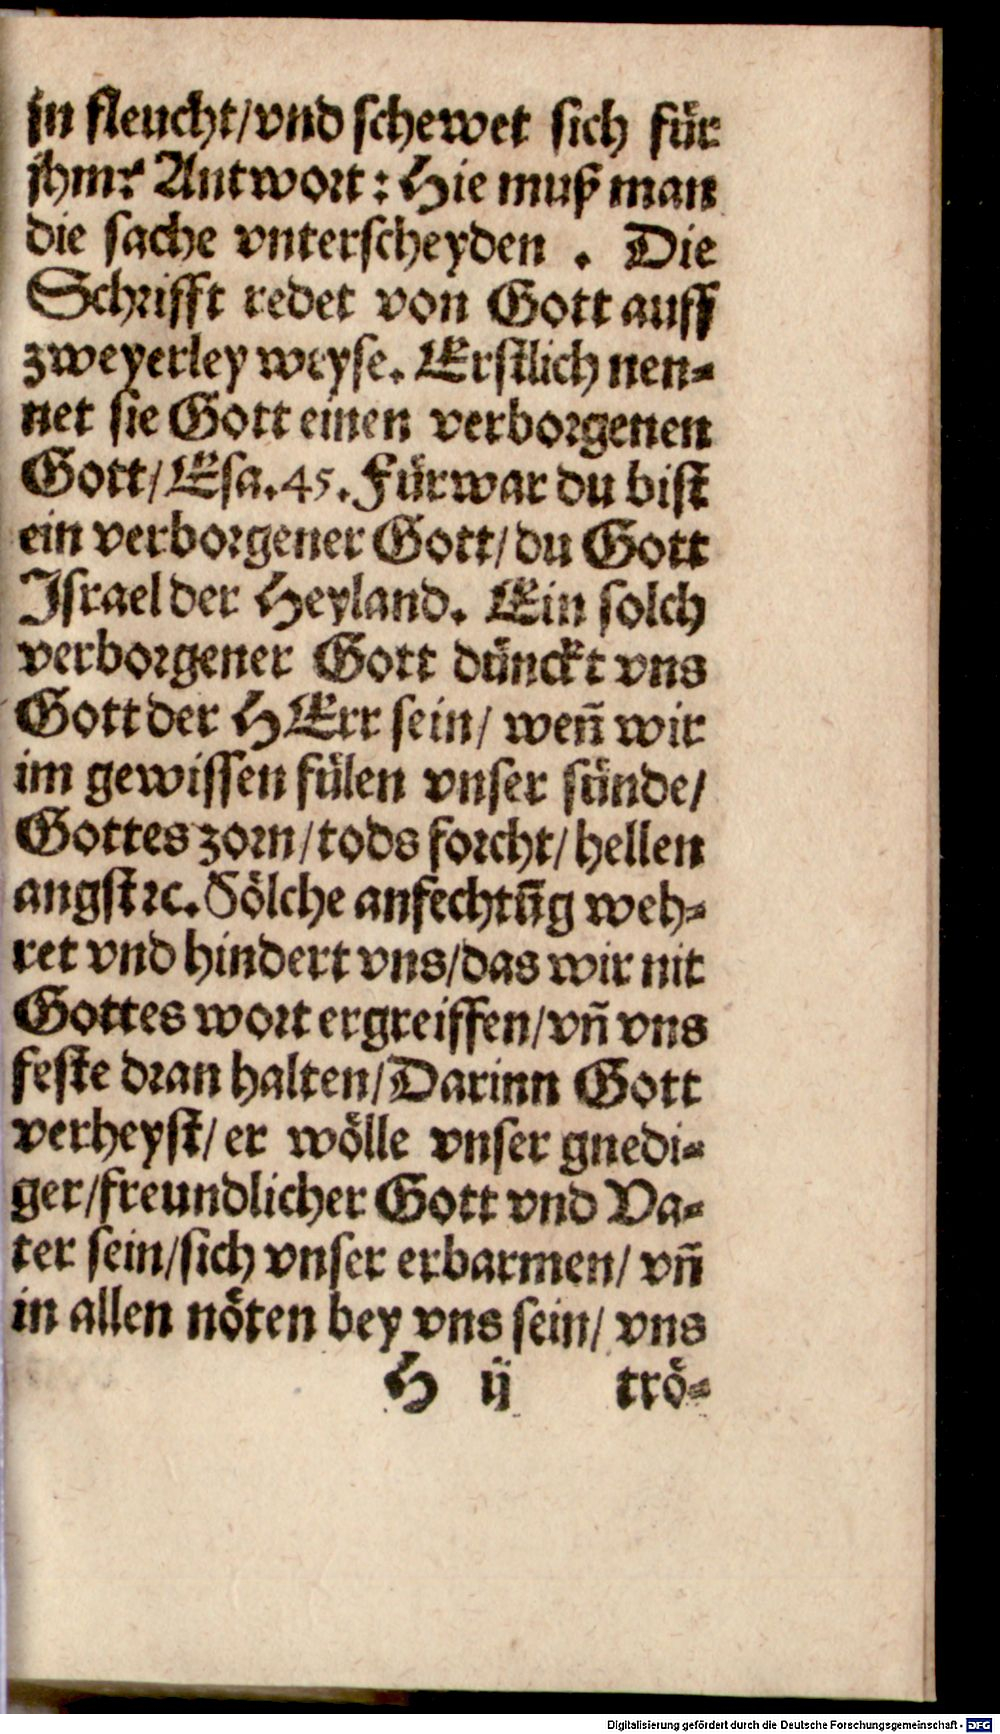 jn fleucht/vnd schewet sich für
jhm? Antwort: Hie muß man
die sache vnterscheyden . Die
Schrifft redet von Gott auff
zweyerley weyse. Erstlich nen-
net sie Gott einen verborgenen
Gott/Esa.45. Fürwar du bist
ein verborgener Gott/du Gott
Israel der Heyland. Ein solch
verborgener Gott dünckt vns
Gott der HErr sein/ weñ wir
im gewissen fülen vnser sünde/
Gottes zorn/tods forcht/hellen
angst ꝛc. Sölche anfechtūg weh-
ret vnd hindert vns/das wir nit
Gottes wort ergreiffen/vñ vns
feste dran halten/Darinn Gott
verheyst/er wölle vnser gnedi-
ger/freundlicher Gott vnd Va-
ter sein/sich vnser erbarmen/ vñ
in allen nöten bey vns sein/ vns
H ij trö-
Digitalisierung gefördert durch die Deutsche Forschungsgemeinschaft - DFG